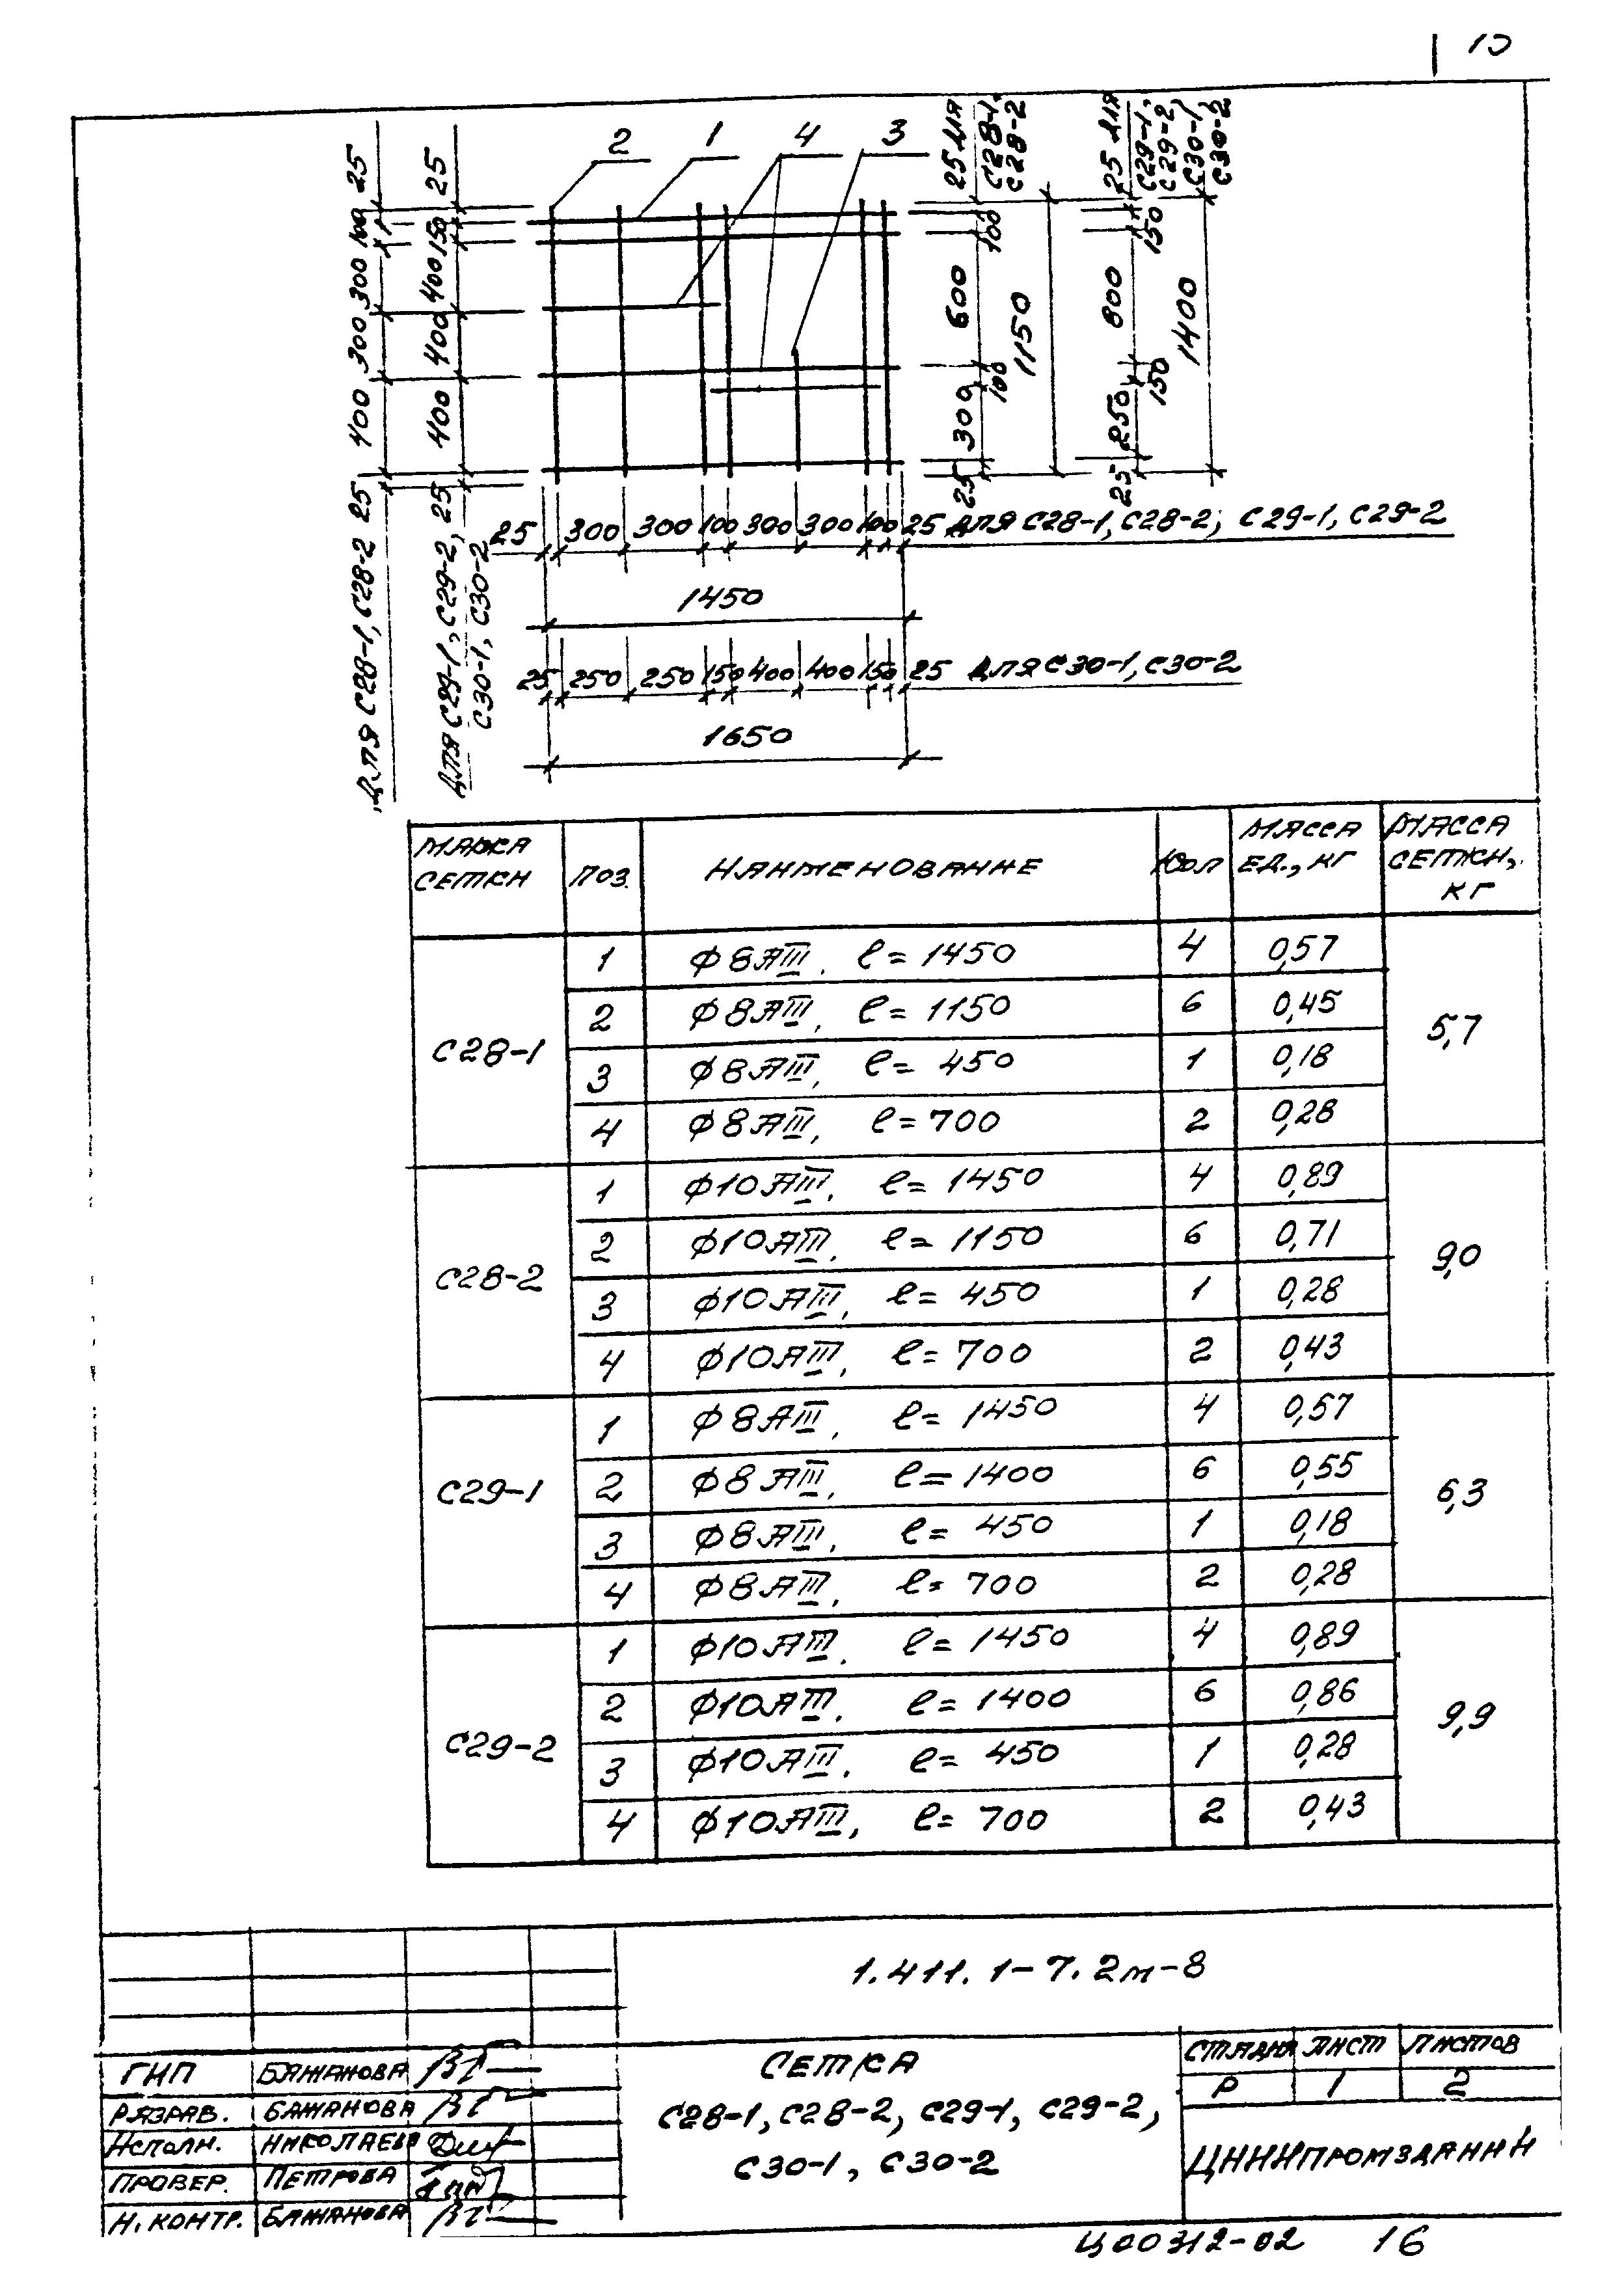 15
2 1 4 3
25 100 300 300 400 25 для С28-1, С28-2
25 150 400 400 400 25 для С29-1, С29-2, С30-1, С30-2
25 для С28-1, С28-2
100 600 100 300 25
1150
25 для С29-1, С29-2, С30-1, С30-2
150 800 150 250 25
1400
25 300 300 100 300 300 100 25 для С28-1, С28-2, С29-1, С29-2
1450
25 250 250 150 400 400 150 25 для С30-1, С30-2
1650
Марка сетки Поз. Наименование Кол Масса ед., кг Масса сетки, кг
С28-1 5,7
1 ф8АIII, ℓ= 1450 4 0,57
2 ф8АIII, ℓ= 1150 6 0,45
3 ф8АIII, ℓ= 450 1 0,18
4 ф8АIII, ℓ= 700 2 0,28
С28-2 9,0
1 ф10АIII, ℓ= 1450 4 0,89
2 ф10АIII, ℓ= 1150 6 0,71
3 ф10АIII, ℓ= 450 1 0,28
4 ф10АIII, ℓ= 700 2 0,43
С29-1 6,3
1 ф8АIII, ℓ= 1450 4 0,57
2 ф8АIII, ℓ= 1400 6 0,55
3 ф8АIII, ℓ= 450 1 0,18
4 ф8АIII, ℓ= 700 2 0,28
С29-2 9,9
1 ф10АIII, ℓ= 1450 4 0,89
2 ф10АIII, ℓ= 1400 6 0,86
3 ф10АIII, ℓ= 450 1 0,28
4 ф10АIII, ℓ= 700 2 0,43
1.411.1-7.2м-8
ГИП Бажанова
Разраб. Бажанова
Исполн. Николаева
Провер. Петрова
Н. контр. Бажанова
Сетка
С28-1, С28-2, С29-1, С29-2,
С30-1, С30-2
Стадия Лист Листов
Р 1 2
ЦНИИпромзданий
Ц00312-02 16